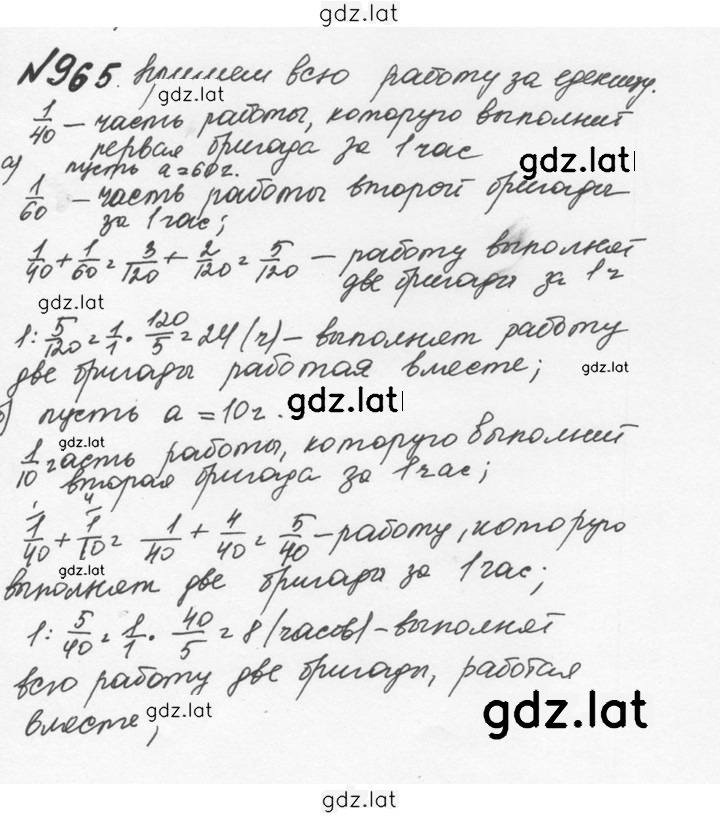 gdz.lat
№965. Примем всю работу за единицу.
gdz.lat
1/40 – часть работы, которую выполнит
первая бригада за 1 час
gdz.lat
а) пусть а = 60 г.
1/60 – часть работы второй бригады
за 1 час;
1/40 + 1/60 = 3/120 + 2/120 = 5/120 – работу выполнят
две бригады за 1 ч
gdz.lat
1 : 5/120 = 1/1 · 120/5 = 24 (ч) – выполнят работу
две бригады работая вместе;
б) пусть а = 10 г.
gdz.lat
gdz.lat
1/10 часть работы, которую выполнит
вторая бригада за 1 час;
1/40 + 1/10 = 1/40 + 4/40 = 5/40 – работу, которую
gdz.lat
выполнят две бригады за 1 час;
1 : 5/40 = 1/1 · 40/5 = 8 (часов) – выполнят
всю работу две бригады, работая
вместе;
gdz.lat
gdz.lat
gdz.lat